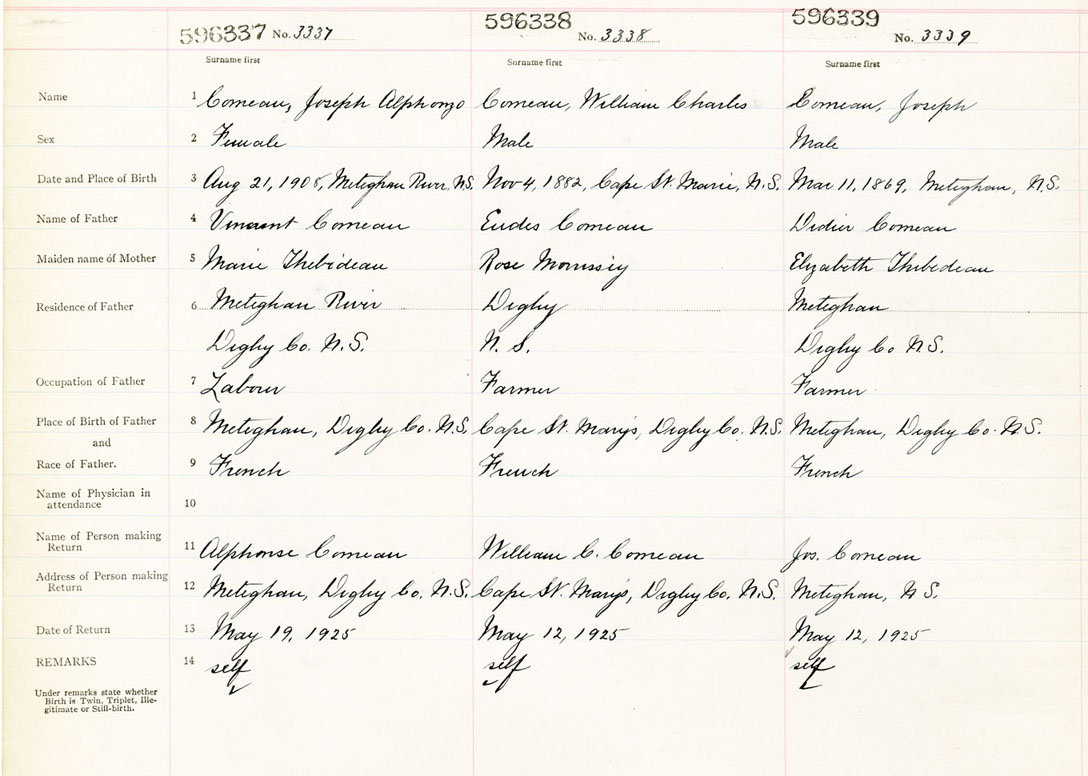 596337 No. 3337 596338 No. 3338 596339 No. 3339
Surname first Surname first Surname first
Name 1 Comeau, Joseph Alphonzo Comeau, William Charles Comeau, Joseph
Sex 2 Female Male Male
Date and Place of Birth 3 Aug 21, Meteghan River, N.S. Nov 4, 1882, Cape St. Marie, N.S. Mar 11, 1869, Meteghan, N.S.
Name of Father 4 Vincent Comeau Eudes Comeau Didier Comeau
Maiden name of Mother 5 Marie Thebideau Rose Morrissey Elizabeth Thibedeau
Residence of Father 6 Meteghan River Digby Meteghan
Digby Co. N.S. N. S. Digby Co N.S.
Occupation of Father 7 Labour Farmer Farmer
Place of Birth of Father 8 Meteghan, Digby Co. N.S. Cape St. Marys, Digby Co. N.S. Meteghan, Digby Co. N.S.
and
Race of Father. 9 French French French
Name of Physician in
attendance 10
Name of Person making
Return 11 Alphonse Comeau William C. Comeau Jos. Comeau
Address of Person making
Return 12 Meteghan, Digby Co. N.S. Cape St. Marys, Digby Co. N.S. Meteghan, N S.
Date of Return 13 May 19, 1925 May 12, 1925 May 12, 1925
REMARKS 14 self self self
Under remarks state whether
Birth is Twin, Triplet, Ille-
gitimate or Still-birth.